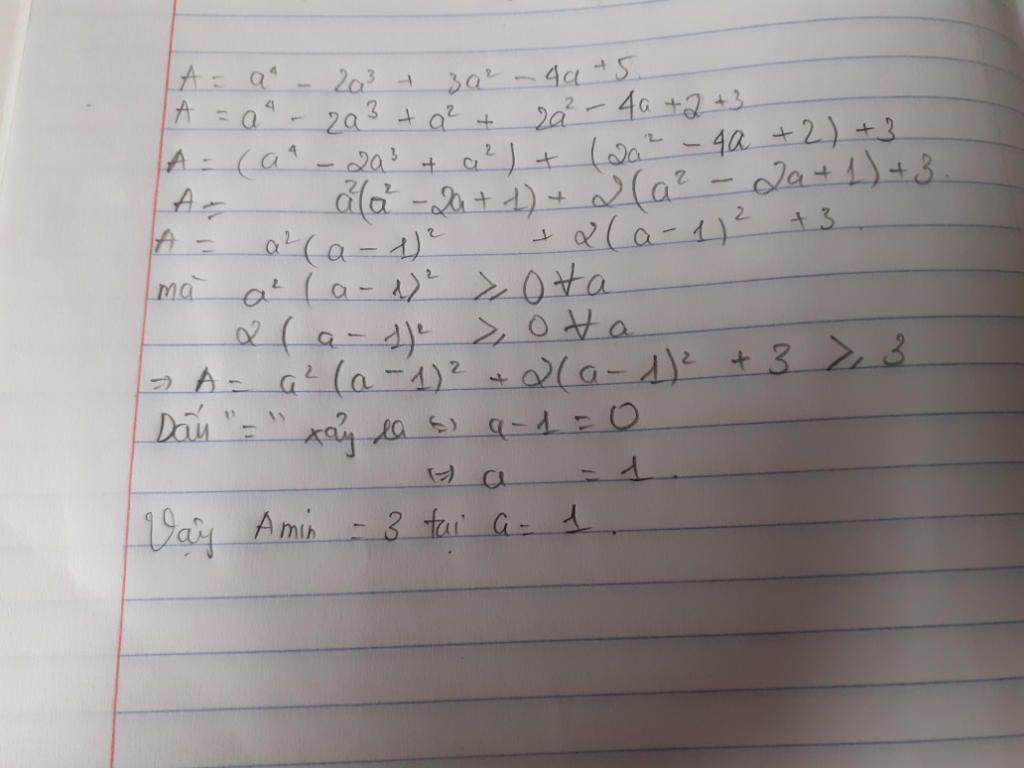 A = a⁴ - 2a³ + 3a² - 4a + 5
A = a⁴ - 2a³ + a² + 2a² - 4a + 2 + 3
A = (a⁴ - 2a³ + a²) + (2a² - 4a + 2) + 3
A = a²(a² - 2a + 1) + 2(a² - 2a + 1) + 3.
A = a²(a - 1)² + 2(a - 1)² + 3.
mà a²(a - 1)² ⩾ 0 ∀a
2(a - 1)² ⩾ 0 ∀a
⇒ A = a²(a - 1)² + 2(a - 1)² + 3 ⩾ 3
Dấu "=" xảy ra ⇔ a - 1 = 0
⇔ a = 1.
Vậy Amin = 3 tại a = 1.